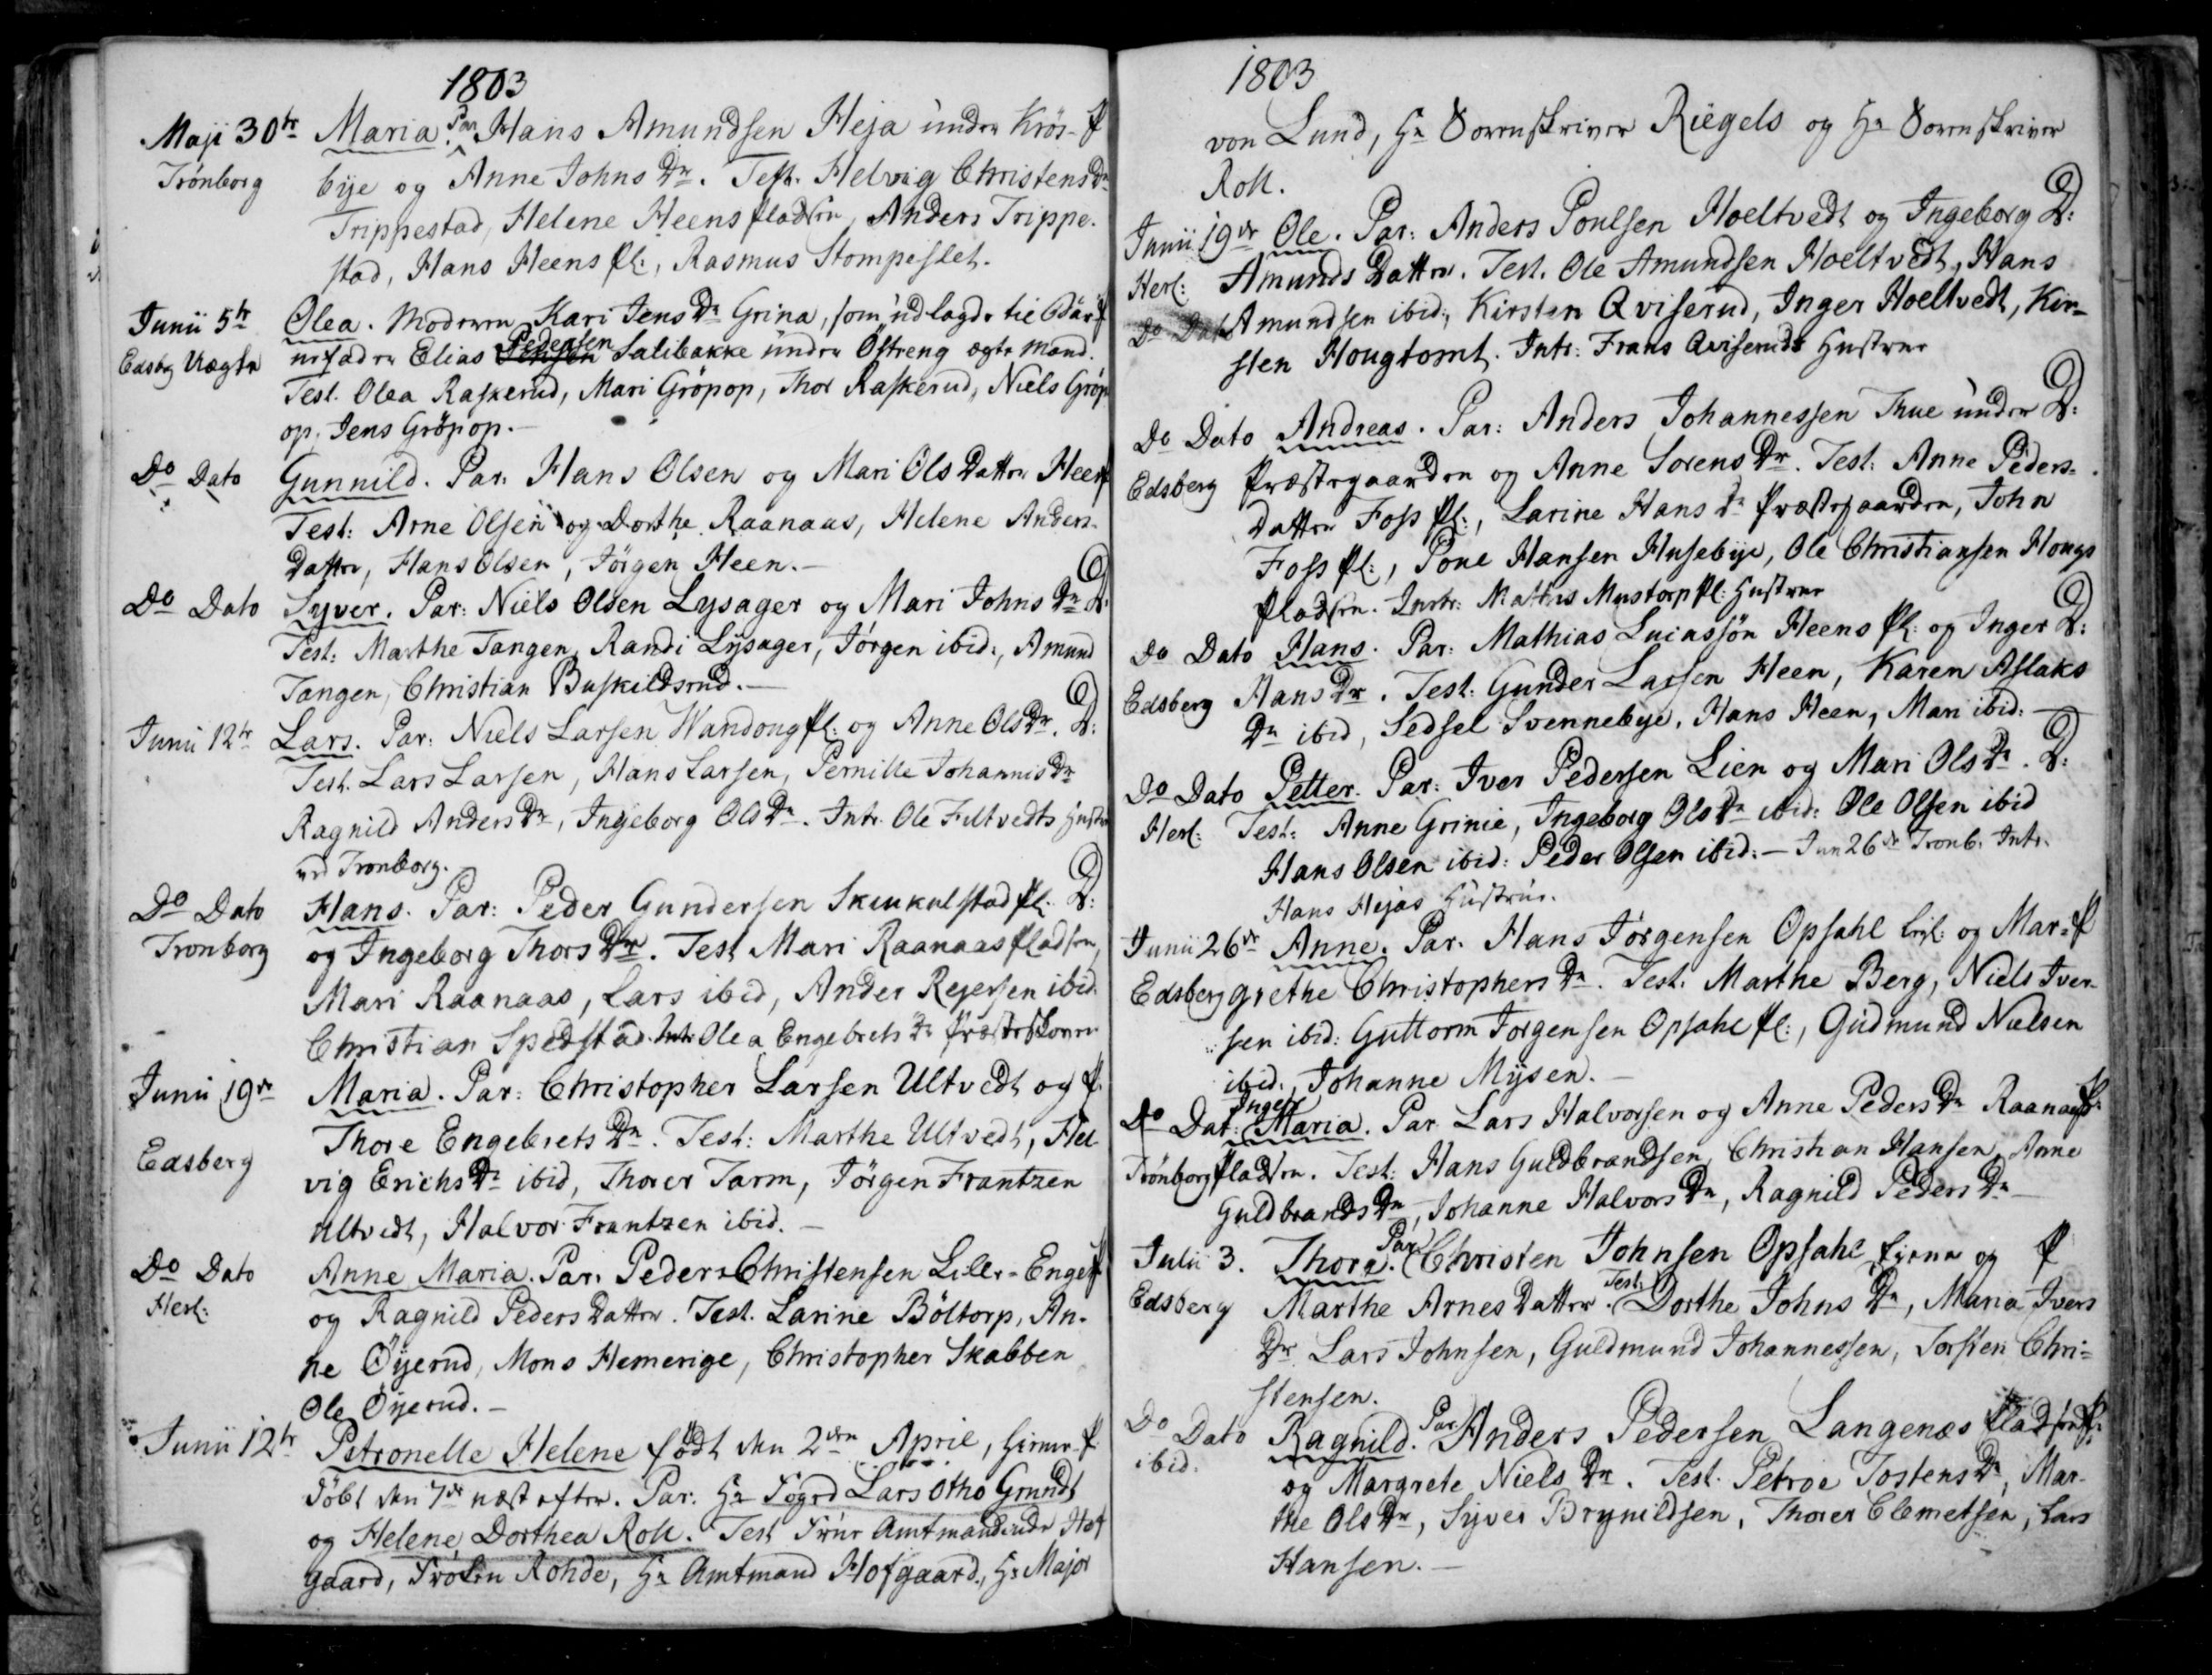 1803
Maji 30te Maria. Par. Hans Amundsen Heja under Krös- P
Trönborg bye og Anne Johns Dr. Test. Helvig Christens Dr
Trippestad, Helene Heens Pladsen, Anders Trippe-
stad, Hans Heens Pl:, Rasmus Stompeslet.
Junii 5te Olea. Moderen Kari Jens Dr Grina, som udlagde til Bar- P
Edsbg Uægte nefader Elias Pedersen Salibakke under Östreng ægte Mand.
Test. Olea Raskerud, Mari Gröpop, Thor Raskerud, Niels Gröp
op, Jens Gröpop.-
Do Dato Gunnild. Par. Hans Olsen og Mari Ols Datter Heen P
Test: Arne Olsen og Dorthe Raanaas, Helene Anders-
Datter, Hans Olsen, Jörgen Heen.-
Do Dato Syver. Par: Niels Olsen Lysager og Mari Johns Dr D:
Test: Marthe Tangen, Randi Lysager, Jörgen ibid:, Amund
Tangen, Christian Buskildsrud.-
Junii 12te Lars. Par: Niels Larsen Wandong Pl: og Anne Ols Dr. D:
Test. Lars Larsen, Hans Larsen, Pernille Johannis Dr
Ragnild Anders Dr, Ingeborg Ols Dr. Intr. Ole Fultvedts Hustru
ved Tronborg.
Do Dato Hans. Par: Peder Gundersen Skukulstad Pl. D:
Tronborg og Ingeborg Thors Dr. Test Mari Raanaas Pladsen,
Mari Raanaas, Lars ibid, Ander Rejersen ibid.
Christian Spedstad. Intr: Olea Engebrets Dr Præsteskoven
Junii 19de Maria. Par: Christopher Larsen Ultvedt og P.
Edsberg Thore Engebrets Dr. Test: Marthe Ultvedt, Hel-
vig Erichs Dr ibid, Thorer Tarm, Jörgen Frantzen
Ultvedt, Halvor Frantzen ibid.-
Do Dato Anne Maria. Par. Peder Christensen Lille-Enge P
Herl: og Ragnild Peders Datter. Test. Larine Böltorp, An-
ne Öyerud, Mons Hemerige, Christopher Skabben
Ole Öyerud.-
Junii 12te Petronelle Helene födt den 2den April, hjemme- P.
döbt den 7de næst efter. Par. Hr Foged Lars Otho Grundt
og Helene Dorthea Roll. Test Frue Amtmandinde Hof
gaard, Fröken Rohde, Hr Amtmand Hofgaard, Hr Major
1803
von Lund, Hr Sorenskriver Riegels og Hr Sorenskriver
Roll.
Junii 19de Ole. Par: Anders Poulsen Hoeltvedt og Ingeborg D:
Herl: Amunds Datter. Test. Ole Amundsen Hoeltvedt, Hans
Do Dato Amundsen ibid:, Kirsten Qviserud, Inger Hoeltvedt, Kir-
sten Hougtomt. Intr: Frans Qviseruds Hustrue
Do Dato Andreas. Par: Anders Johannessen Thue under D:
Edsberg Præstegaarden og Anne Sorens Dr. Test: Anne Peders-
Datter Foss Pl:, Larine Hans Dr Præstegaarden, John
Foss Pl:, Poul Hansen Husebye, Ole Christiansen Hougs
Pladsen. Intr: Mathis Mustorp Pl: Hustrue
Do Dato Hans. Par: Mathias Luciassön Heens Pl: og Inger D:
Edsberg Hans Dr. Test: Gunder Larsen Heen, Karen Aslaks
Dr ibid, Sedsel Svennebye, Hans Heen, Mari ibid:-
Do Dato Petter. Par: Iver Pedersen Lien og Mari Ols Dr. D:
Herl: Test: Anne Grinie, Ingeborg Ols Dr ibid: Ole Olsen ibid
Hans Olsen ibid: Peder Olsen ibid:- Jun 26de Tronb. Intr.
Hans Hejas Hustrue.
Junii 26de Anne. Par. Hans Jörgensen Opsahl og Mar- P
Edsberg grethe Christophers Dr. Test. Marthe Berg, Niels Iver-
sen ibid: Guttorm Jorgensen Opsahl Pl:, Gudmund Nielsen
ibid., Johanne Mysen.-
Do Dat: Inger Maria. Par. Lars Halvorsen og Anne Peders Dr Raanaas P.
Trönborg Pladsen. Test: Hans Guldbrandsen, Christian Hansen, Anne
Guldbrands Dr, Johanne Halvors Dr, Ragnild Peders Dr-
Julii 3. Thora. Par. Christen Johnsen Opsahl og P
Edsberg Marthe Arnes Datter. Test: Dorthe Johns Dr, Maria Ivers
Dr. Lars Johnsen, Guldmund Johannessen, Torsten Chri-
stensen.
Do Dato Ragnild. Par. Anders Pedersen Langenæs Pladsen P.
ibid. og Margrete Niels Dr. Test. Petroe Tostens Dr, Mar-
the Ols Dr, Syver Brynildsen, Thorer Clemetsen, Lars
Hansen.-